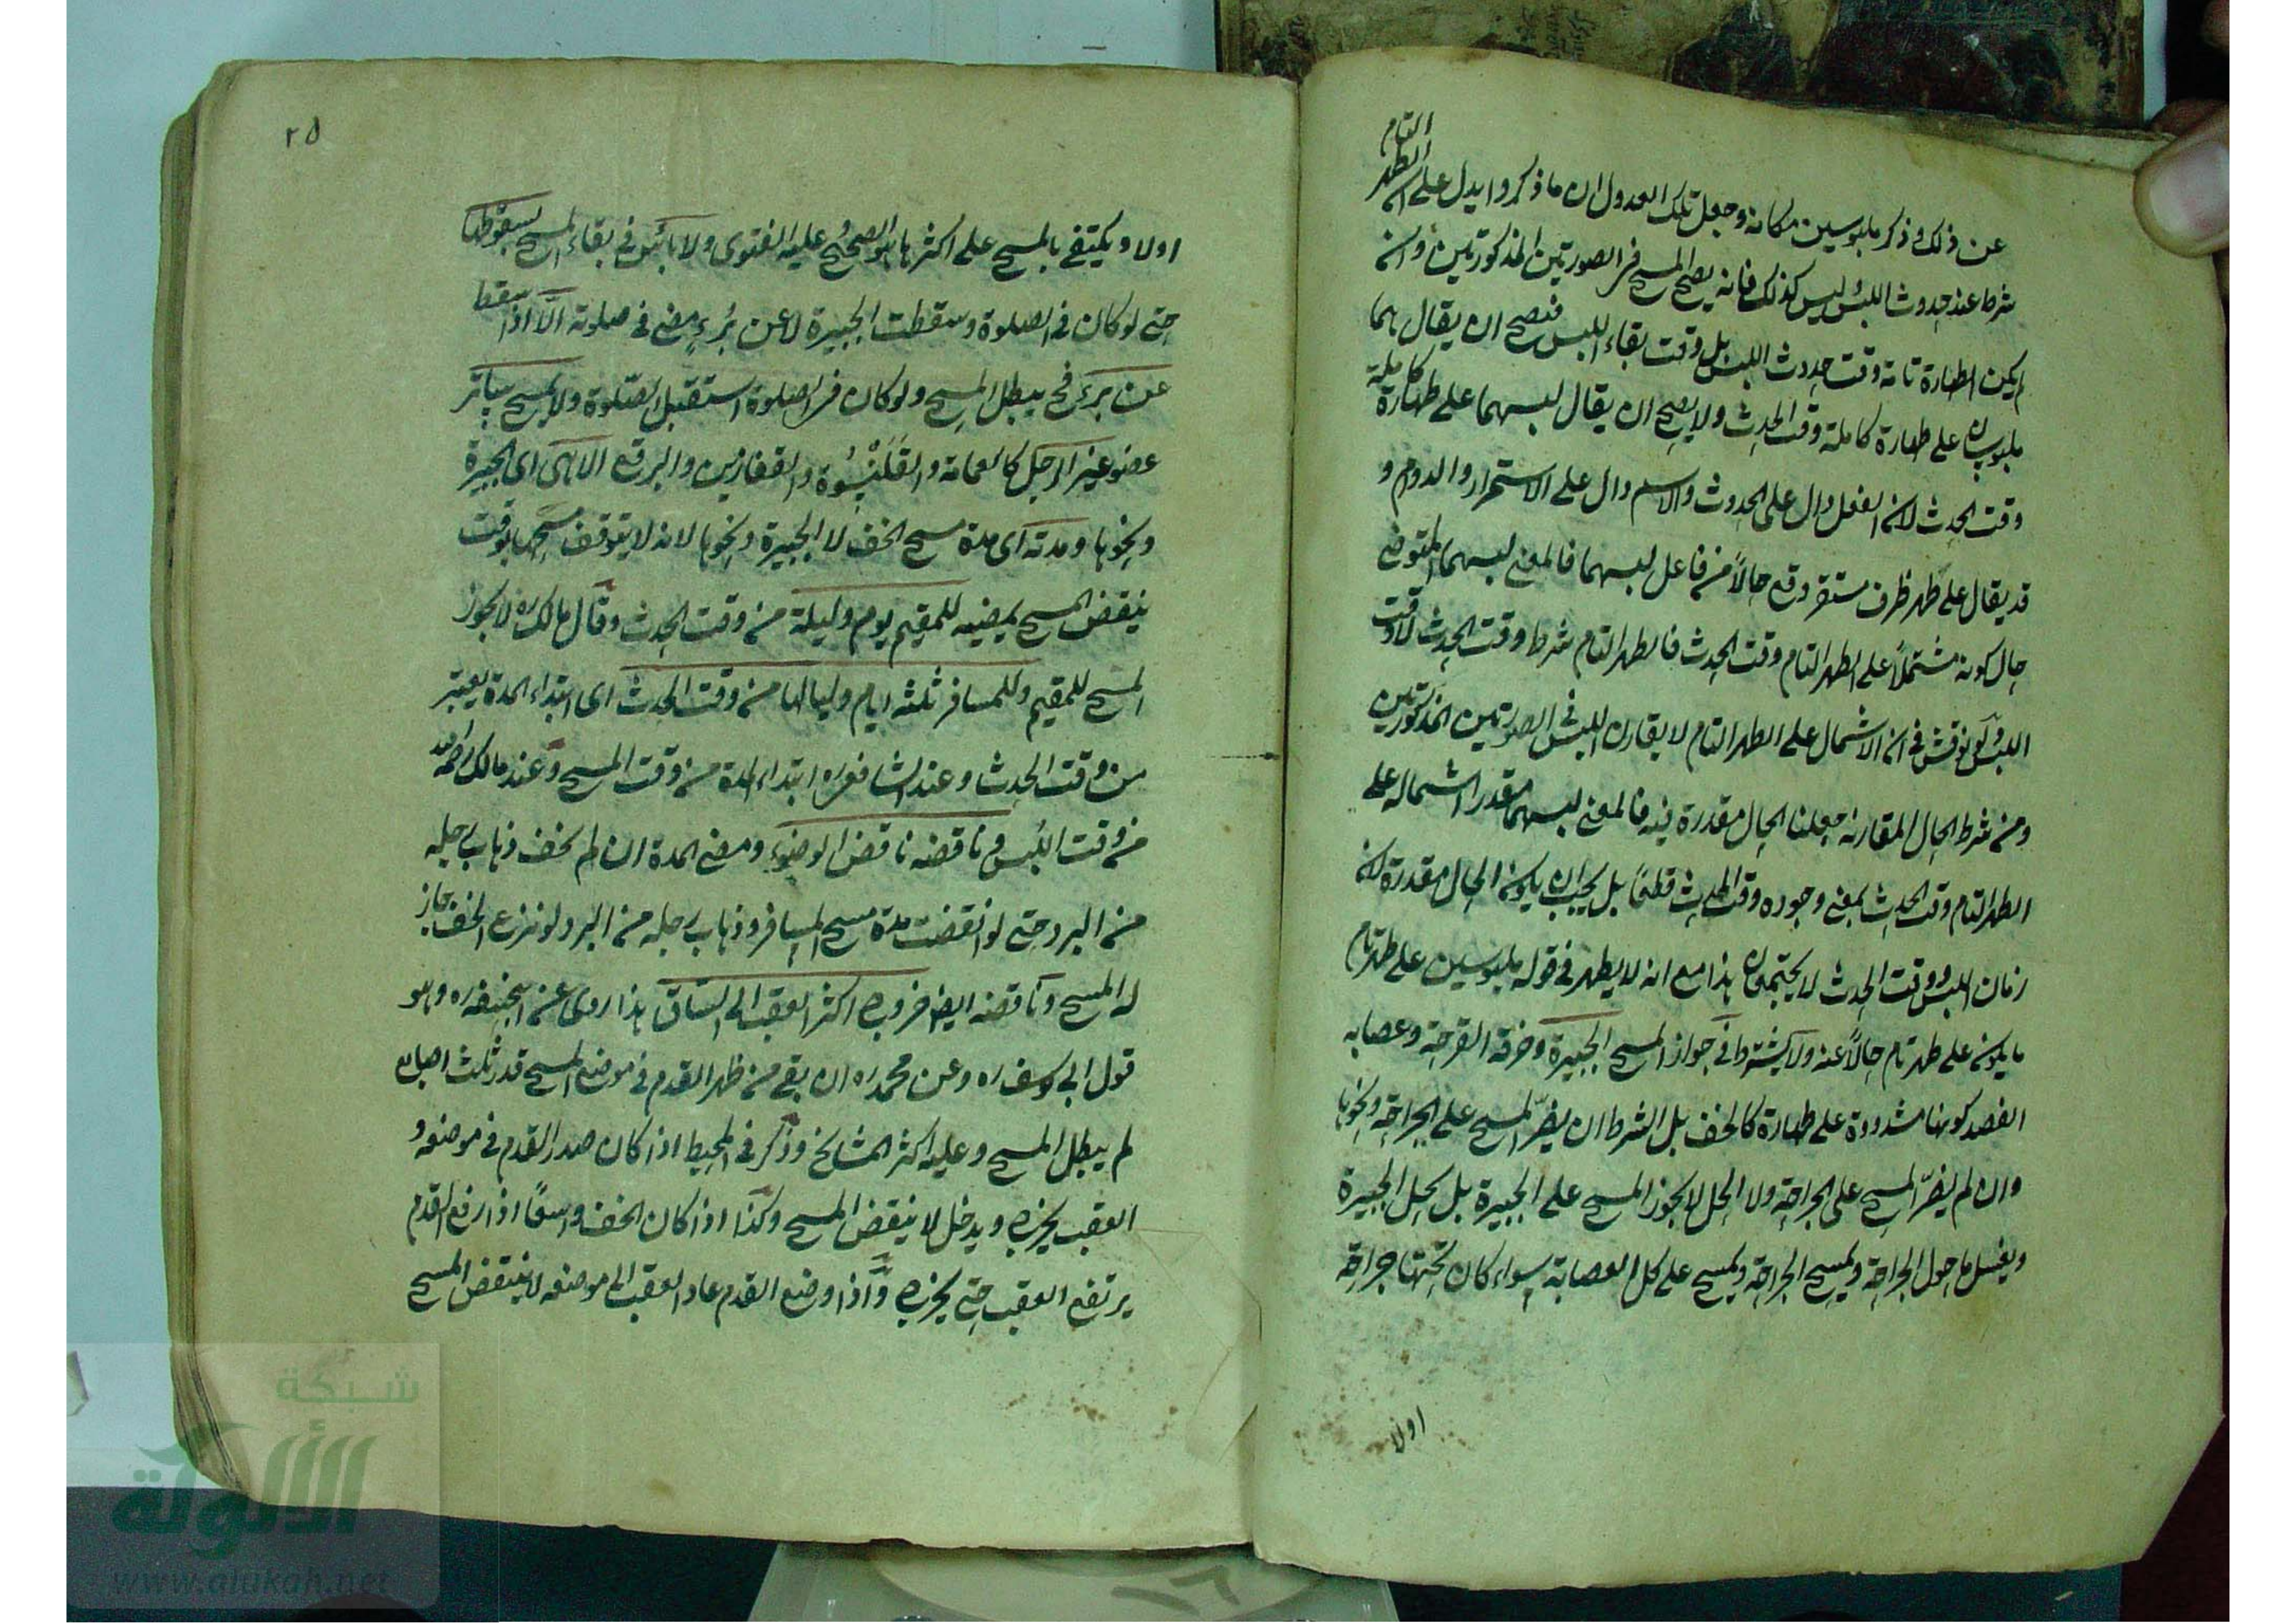 عن ذلك وذكر ملبوسين مكانه وجعل تلك العدول ان ما ذكروا يدل على ان الطهر التام
شرط عند حدوث اللبس ليس كذلك فانه يصح المسح في الصورتين المذكورتين وان
لم يكن الطهارة تامة وقت حدوث اللبس بل وقت بقاء اللبس فتصح ان يقال هما
ملبوسان على طهارة كاملة وقت الحدث ولا يصح ان يقال لبسهما على طهارة كاملة
وقت الحدث لان الفعل دال على الحدوث والاسم دال على الاستمرار والدوام و
قد يقال على طهر ظرف مستقر وقع حالاً من فاعل لبسهما فالمعنى لبسهما المتوضى
حال كونه مشتملاً على الطهر التام وقت الحدث فالطهر التام شرط وقت الحدث لا وقت
اللبس ولو نوقش في ان الاشتمال على الطهر التام لا يقارن اللبس في الصورتين المذكورتين
ومن شرط الحال المقارنة جعلنا الحال مقدرة فيه فالمعنى لبسهما مقدر اشتماله على
الطهر التام وقت الحدث بمعنى وجوده وقت الحدث قطعًا بل يجب ان يكون الحال مقدرة لان
زمان اللبس ووقت الحدث لا يجتمعان هذا مع انه لا يظهر في قوله ملبوسين على طهر تام
ما يكون على طهر تام حالاً عنه ولا يشترط في جواز المسح الجبيرة وخرقة القرحة وعصابه
الفصد كونها مشدودة على طهارة كالخف بل الشرط ان يضرّ المسح على الجراحة ونحوها
وان لم يضرّ المسح على الجراحة ولا الحل لا يجوز المسح على الجبيرة بل يحل الجبيرة
ويغسل ما حول الجراحة ويمسح الجراحة ويمسح على كل العصابة سواء كان تحتها جراحة
اولا
٢٥
اولا ويكتفي بالمسح على اكثرها هو الصحيح عليه الفتوى ولا بأس في بقاء المسح بسقوطها
حتى لو كان في الصلوة وسقطت الجبيرة لا عن بُرءٍ مضى في صلوته الّا اذا سقط
عن برئ فح يبطل المسح ولو كان في الصلوة استقبل الصلوة ولا يمسح بساتر
عضو غير الرجل كالعمامة والقَلَنْسُوة والقفازين والبرقع الا هى اى الجبيرة
ونحوها ومدته اى مدة مسح الخف لا الجبيرة ونحوها لانه لا يتوقف مسحها بوقت
ينقض المسح بمضيه للمقيم يوم وليلة من وقت الحدث وقال مالك ره لا يجوز
المسح للمقيم وللمسافر ثلثه ايام ولياليها من وقت الحدث اى ابتداء المدة يعتبر
من وقت الحدث وعند الشافعى ره ابتداء المدة من وقت المسح وعند مالك رحمه الله
من وقت اللبس وناقضه ناقض الوضوء ومضى المدة ان لم يخف ذهاب رجله
من البرد حتى لو انقضت مدة مسح المسافر وذهاب رجله من البرد لو نزع الخف جاز
له المسح وناقضه ايضا خروج اكثر العقب الى الساق هذا روى عن ابيحنيفه ره وهو
قول ابى يوسف ره وعن محمد ره ان بقى من ظهر القدم في موضع المسح قدر ثلث اصابع
لم يبطل المسح وعليه اكثر المشايخ وذكر في المحيط اذا كان صدر القدم في موضعه و
العقب يخرج ويدخل لا ينقض المسح وكذا اذا كان الخف واسعًا اذا رفع القدم
يرتفع العقب حتى يخرج وّاذا وضع القدم عاد العقب الى موضعه لا ينتقض المسح
شبكة
الألوكة
www.alukah.net